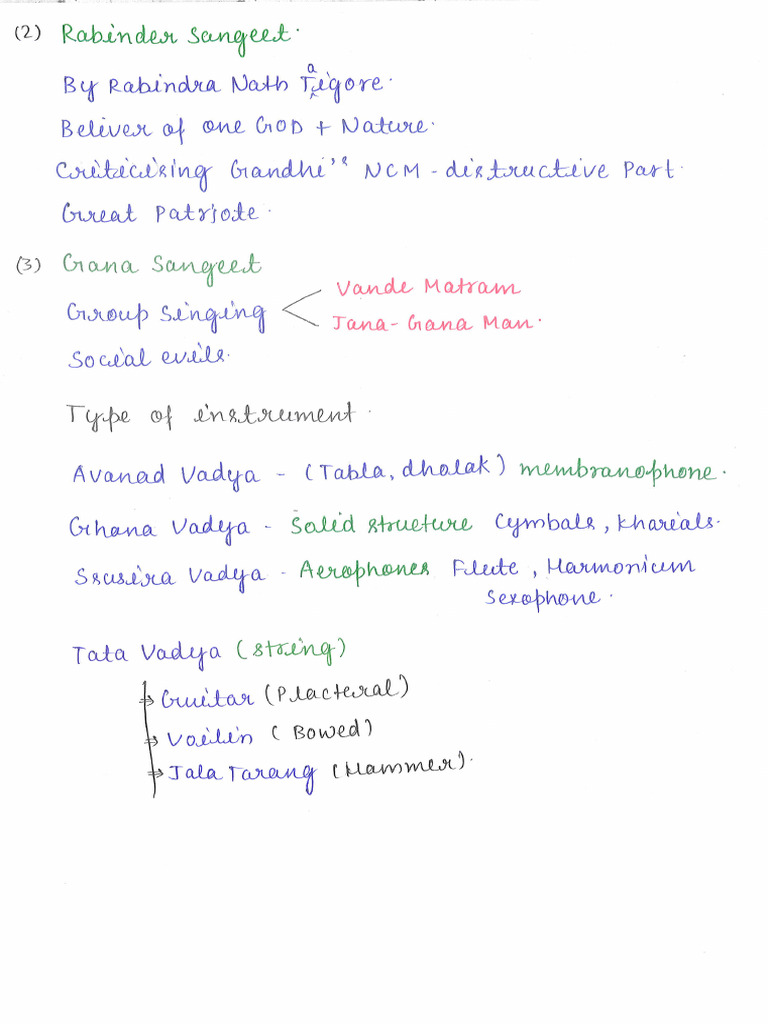 (2) Rabinder Sangeet.
By Rabindra Nath Taigore.
Beliver of one GOD + Nature.
Criticising Gandhi's NCM - distructive Part.
Great Patriote.
(3) Gana Sangeet
Group Singing
Vande Matram
Jana-Gana Man.
Social evils.
Type of instrument.
Avanad Vadya - (Tabla, dholak) membranophone.
Ghana Vadya - Solid structure Cymbals, khartals.
Ssusira Vadya - Aerophones Flute, Harmonium
Sexophone.
Tata Vadya (string)
Guitar (Placteral)
Voilin (Bowed)
Jala Tarang (Hammer).